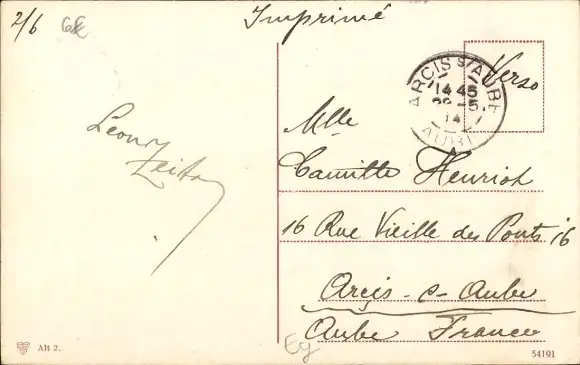 2/6
Imprimé
Verso
ARCIS S/AUBE
1445
5
14
AUBE
Mlle
Camille Henriot
16 Rue Vieille des Ponts 16
Arcis-s-Aube
Aube France
Leon
Alt 2.
54191